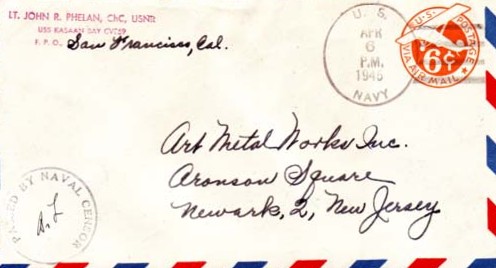 LT. JOHN R. PHELAN, ChC, USNR
USS KASAAN BAY CVE69
F. P. O. San Francisco, Cal.
U. S.
APR
6
P.M.
1945
NAVY
U.S. POSTAGE
6¢
VIA AIR MAIL
Art Metal Works Inc.
Aronson Square
Newark, 2, New Jersey
PASSED BY NAVAL CENSOR